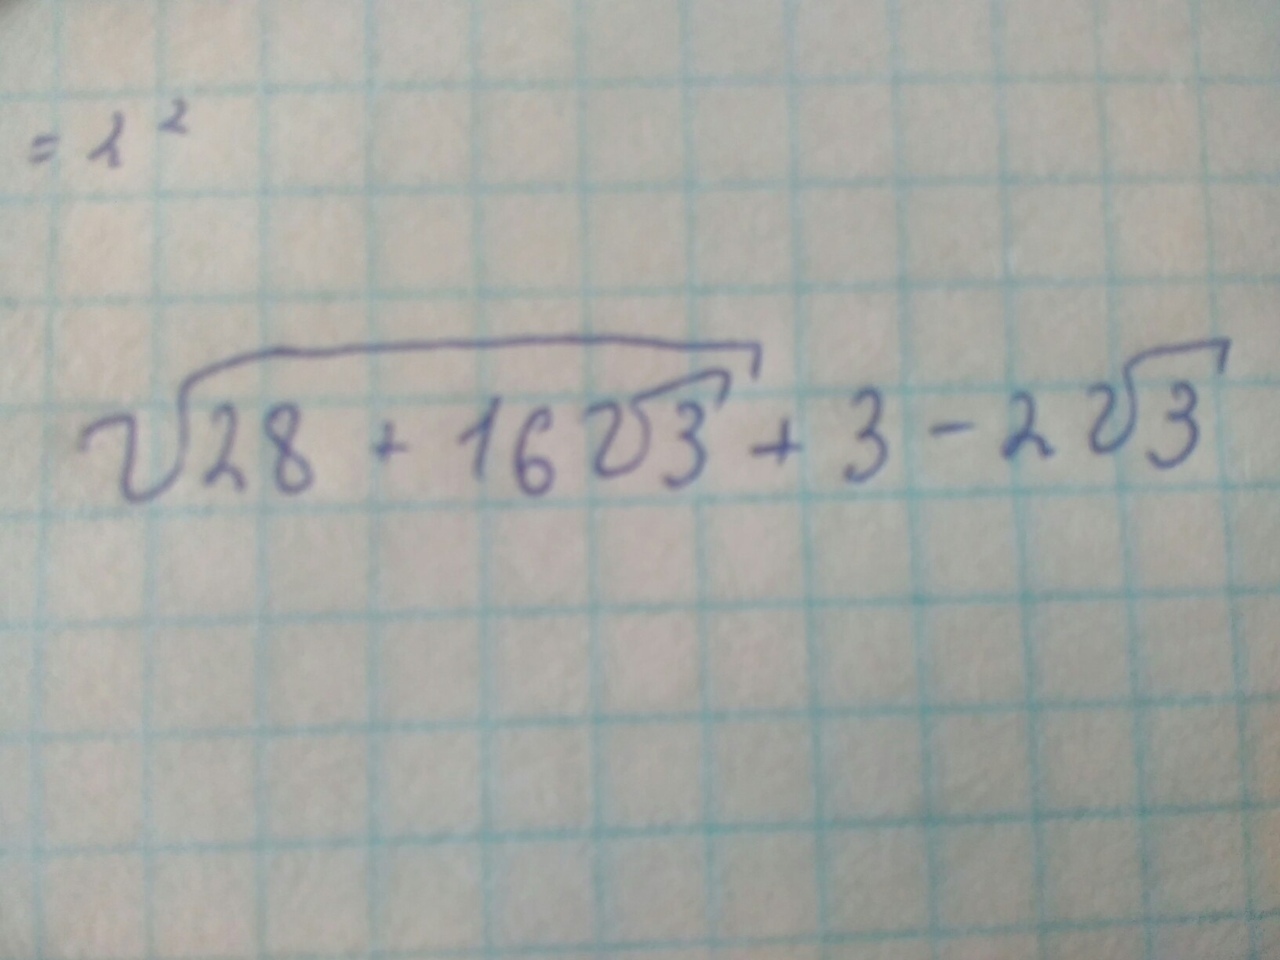 = 2²
√(28 + 16√3) + 3 - 2√3